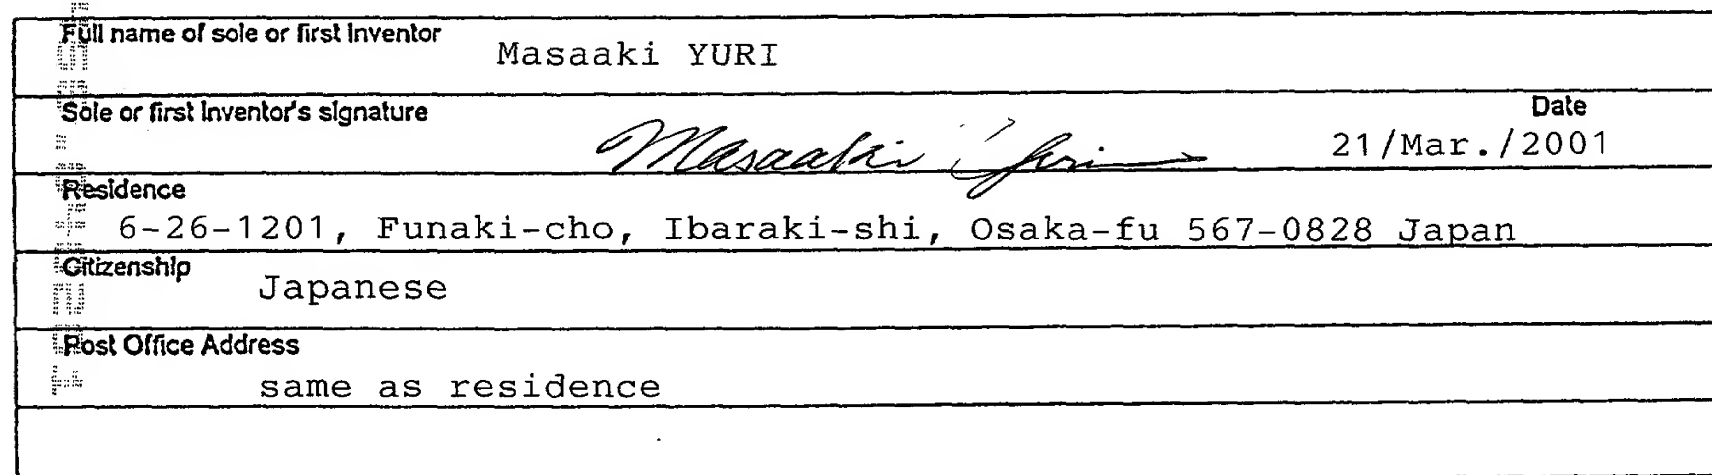 Full name of sole or first inventor
Masaaki YURI
Sole or first inventor's signature
Date
Masaaki Yuri
21/Mar./2001
Residence
6-26-1201, Funaki-cho, Ibaraki-shi, Osaka-fu 567-0828 Japan
Citizenship
Japanese
Post Office Address
same as residence